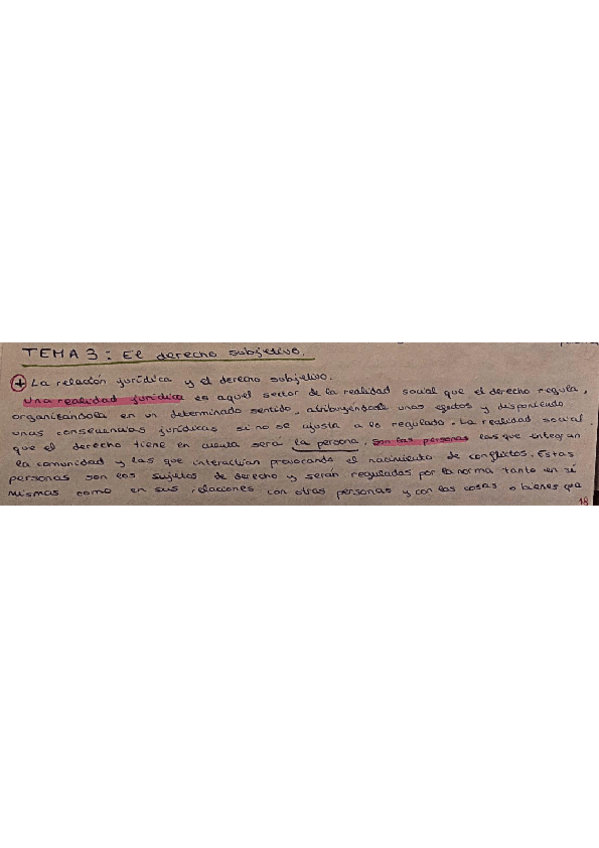 TEMA 3: El derecho subjetivo.
+ La relación jurídica y el derecho subjetivo.
Una realidad jurídica es aquel sector de la realidad social que el derecho regula,
organizándola en un determinado sentido, atribuyéndole unos efectos y disponiendo
unas consecuencias jurídicas si no se ajusta a lo regulado. La realidad social
que el derecho tiene en cuenta será la persona. Son las personas las que integran
la comunidad y las que interactúan provocando el nacimiento de conflictos. Estas
personas son los sujetos de derecho y serán reguladas por la norma tanto en sí
mismas como en sus relaciones con otras personas y con las cosas o bienes que
18